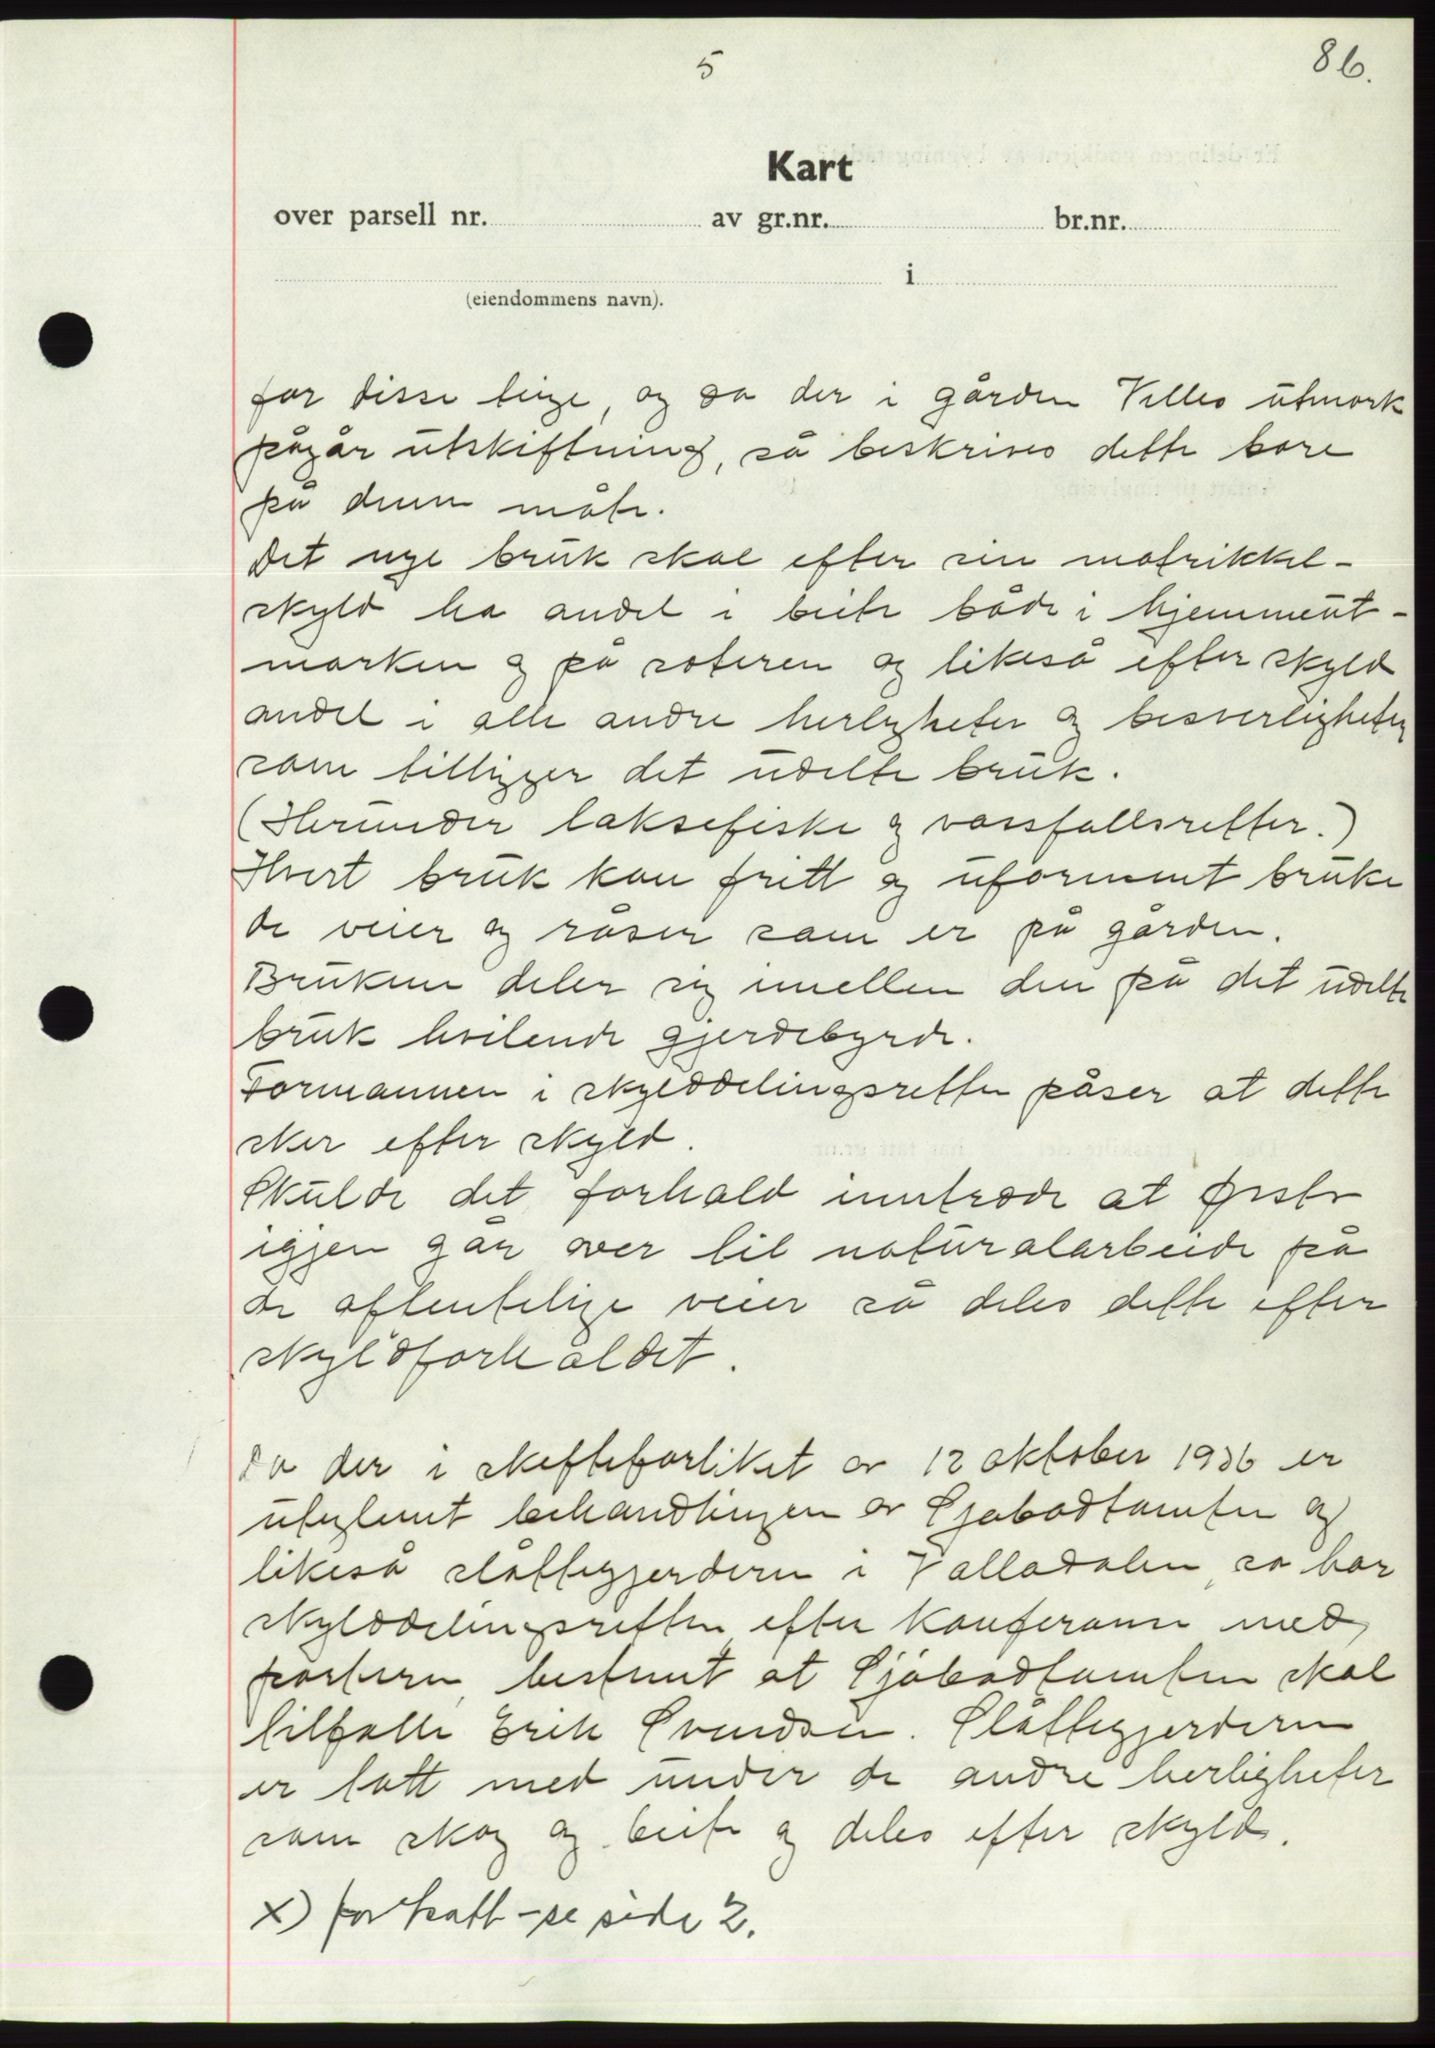 5
86.
Kart
over parsell nr. av gr.nr. br.nr.
i
(eiendommens navn).
for disse teige, og da der i gården Velles utmark
pågår utskiftning, så beskrives dette bare
på denne måte.
Det nye bruk skal efter sin matrikkel-
skyld ha andel i beite både i hjemmeut-
marken og på seteren og likeså efter skyld
andel i alle andre herligheter og besverligheter
som tilligger det udelte bruk.
(Herunder laksefiske og vassfallsretter.)
Hvert bruk kan fritt og uforment bruke
de veier og råser som er på gården.
Brukene deler sig imellem den på det udelte
bruk hvilende gjerdebyrde.
Formannen i skylddelingsretten påser at dette
sker efter skyld.
Skulde det forhold inntræde at Ørsta
igjen går over til naturalarbeide på
de offentlige veier så deles dette efter
skyldforholdet.
Da der i skifteforliket av 12 oktober 1936 er
uteglemt behandlingen av Sjøbodtomten og
likeså slåttegjerdene i Valladalen, så har
skylddelingsretten efter konferanse med
partene, bestemt at Sjøbodtomten skal
tilfalle Erik Svendsen. Slåttegjerdene
er tatt med under de andre herligheter
som skog og beite og deles efter skyld.
x) fortsatt - se side 2.